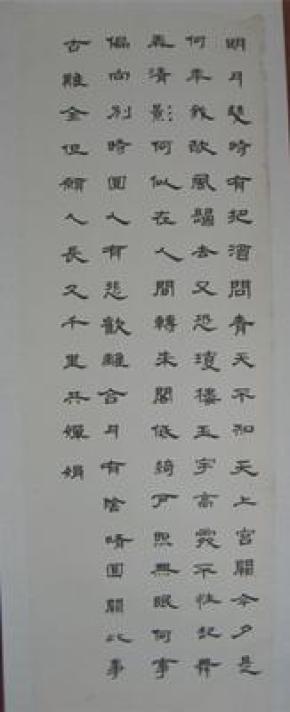 明月幾時有把酒問青天不知天上宮闕今夕是
何年我欲風歸去又恐瓊樓玉宇高處不胜起舞
弄清影何似在人間轉朱閣低綺戶照無眠何事
偏向別時圓人有悲歡離合月有陰晴圓闕此事
古難全但願人長久千里共嬋娟